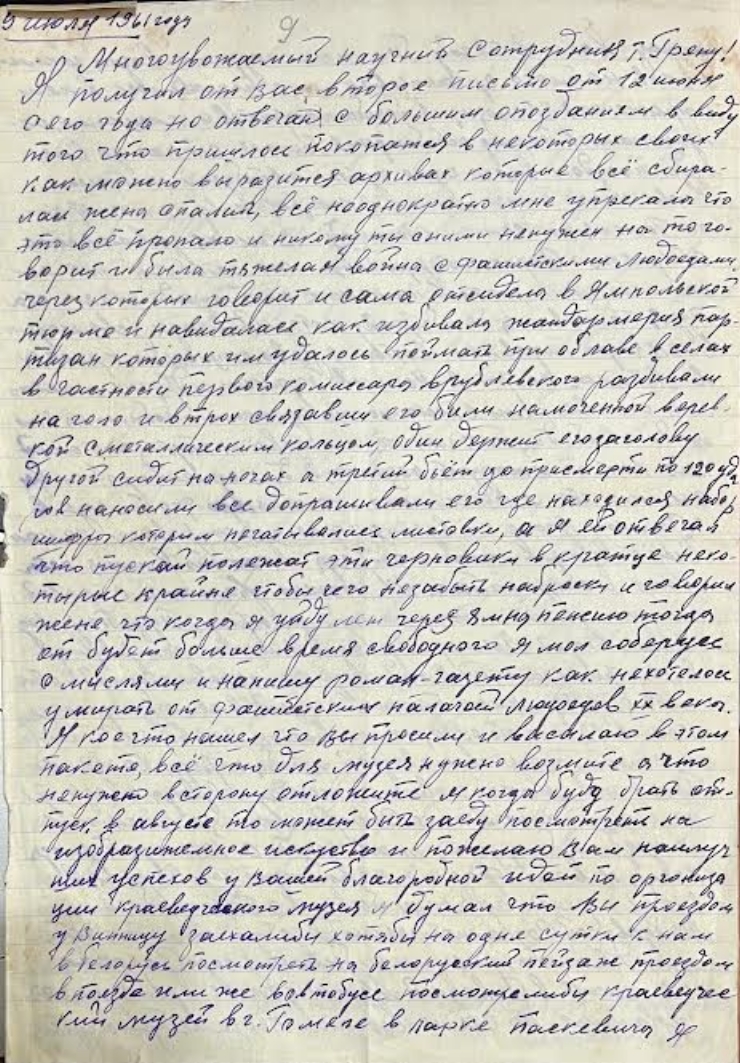 9 июля 1961 году
9
Многоуважаемый научний сотрудник т. Грену!
Я получил от вас второе письмо от 12 июня
сего года но отвечаю с большим опозданием в виду
того что пришлось покопатся в некоторых своих
как можно выразится архивах которые всё сбира-
лась жена спалить, всё нооднократно мне упрекала что
это всё пропало и никому ты сними ненужен на то го-
ворит и была тяжелая война с фашистскими людоедами,
через которых говорит и сама отсидела в Ямпольской
тюрме и навидалась как избивала жандармерия пар-
тизан которых им удалось поймать при облаве в селах
в частности первого комиссара врублевского разбивали
на голо и втрох связавши его били намоченной верев-
кой с металлическим кольцом, один держит его за голову
другой сидит на ногах а третий бьёт до присмерти по 120 уда
ров наносили все допрашивали его где находился набор
шифры которим печатывались листовки, а я ей отвечал
что пускай полежат эти черновики в кратце неко-
тырые крайне чтобы чего незабыть наброски и говорил
жене что когда я уйду лет через 8 мна пенсию тогда
от будет больше время свободного я мол соберусь
с мислями и напишу роман-газету как нехотелось
умирать от фашистских палачей людоедов XX века.
Я кое что нашел что Вы просили и висилаю в этом
пакете, всё что для музея нужно возмите а что
ненужно в сторону отложите я когда буду брать от-
пуск в августе то может быть заеду посмотреть на
изобразижемное искуство и пожелаю Вам наилуч
ших успехов у Вашей благородной идей по организа
ции краеведческого музея я думал что Вы проездом
у Винницу заехалиби хотяби на одне сутки к нам
в Белорусь посмотреть на белоруский пейзаж проездом
в поезде или же вовтобусе посмотрелиби краеведчес
кий музей в г. Гомеле в парке Паскевича Я